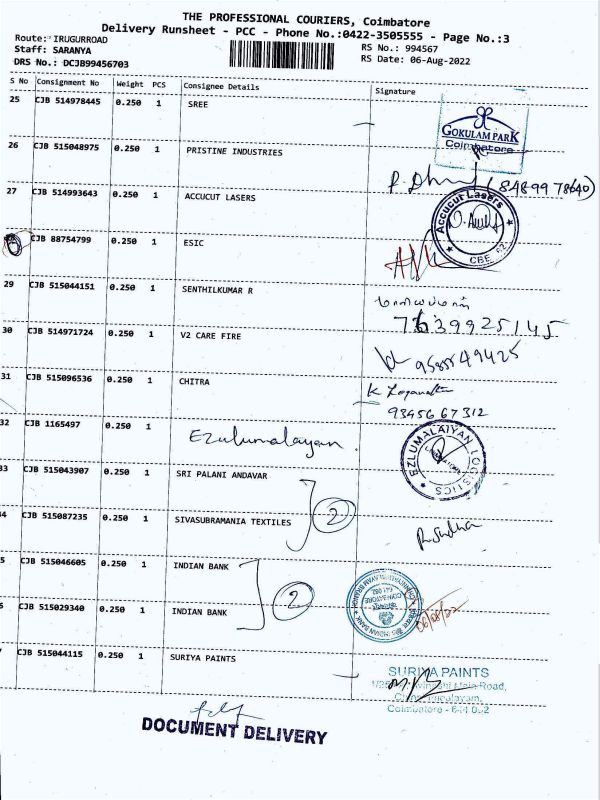 THE PROFESSIONAL COURIERS, Coimbatore
Delivery Runsheet - PCC - Phone No.:0422-3505555 - Page No.:3
Route: IRUGURROAD
RS No.: 994567
Staff: SARANYA
RS Date: 06-Aug-2022
DRS No.: DCJB99456703
S No Consignment No Weight PCS Consignee Details Signature
25 CJB 514978445 0.250 1 SREE
GOKULAM PARK
Coimbatore
26 CJB 515048975 0.250 1 PRISTINE INDUSTRIES
(84899 78640)
27 CJB 514993643 0.250 1 ACCUCUT LASERS
Accucut Lasers
CBE
CJB 88754799 0.250 1 ESIC
29 CJB 515044151 0.250 1 SENTHILKUMAR R
7639925145
30 CJB 514971724 0.250 1 V2 CARE FIRE
31 CJB 515096536 0.250 1 CHITRA
K Loganath
9345667312
32 CJB 1165497 0.250 1 Ezulumalaiyan.
EZLUMALAIYAN LOGISTICS
33 CJB 515043907 0.250 1 SRI PALANI ANDAVAR
2
4 CJB 515087235 0.250 1 SIVASUBRAMANIA TEXTILES
5 CJB 515046605 0.250 1 INDIAN BANK
2
INDIAN BANK
06/08/22
6 CJB 515029340 0.250 1 INDIAN BANK
CJB 515044115 0.250 1 SURIYA PAINTS
SURIYA PAINTS
Main Road,
Coimbatore - 641 062
DOCUMENT DELIVERY